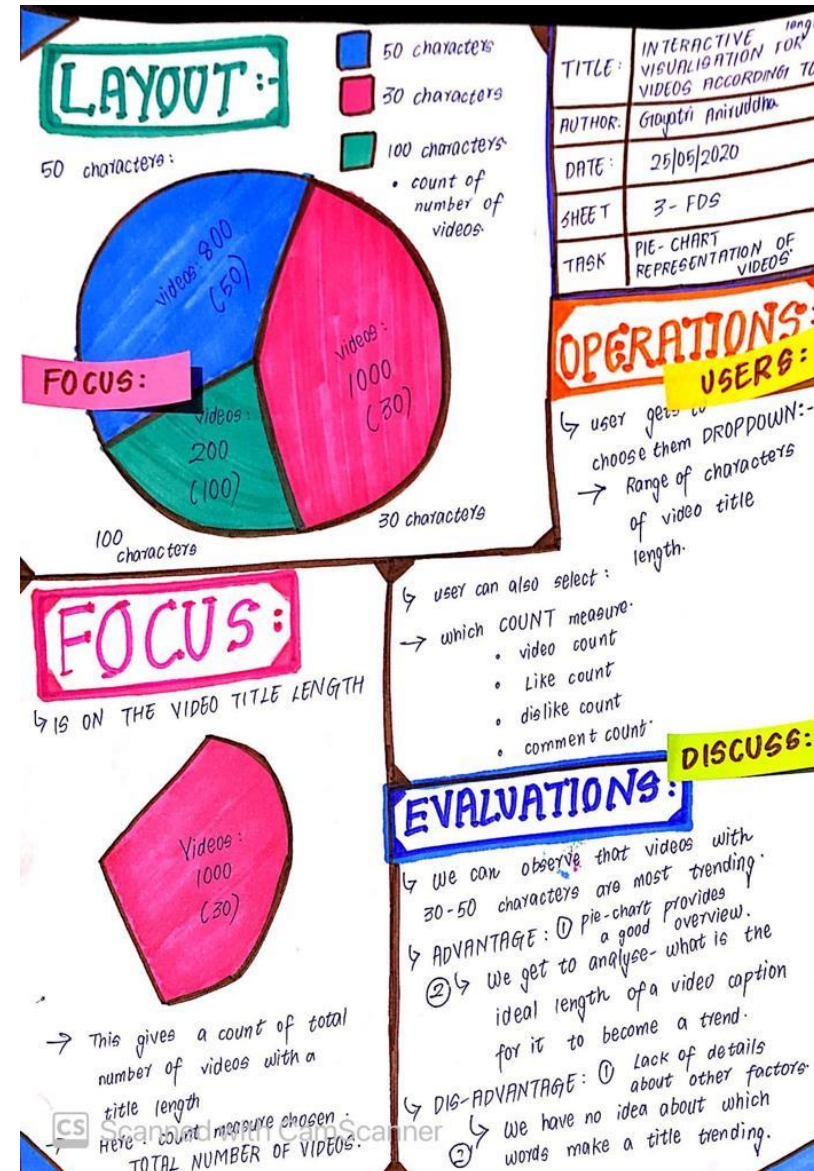 LAYOUT:-
50 characters
30 characters
100 characters.
• count of
number of
videos.
50 characters:
videos: 800
(50)
videos:
1000
(30)
FOCUS:
videos:
200
(100)
100
characters
30 characters
TITLE:
INTERACTIVE
VISUALISATION FOR
VIDEOS ACCORDING TO
AUTHOR: Gayatri Aniruddha
DATE: 25/05/2020
SHEET 3- FDS
TASK
PIE-CHART
REPRESENTATION OF
VIDEOS.
OPERATIONS:
USERS:
↳ user gets to
choose them DROPDOWN:-
→ Range of characters
of video title
length.
↳ user can also select:
→ which COUNT measure.
• video count
• Like count
• dislike count
• comment count.
FOCUS:
↳ IS ON THE VIDEO TITLE LENGTH
Videos:
1000
(30)
→ This gives a count of total
number of videos with a
title length
→ Here: count measure chosen:
TOTAL NUMBER OF VIDEOS.
DISCUSS:
EVALUATIONS:
↳ We can observe that videos with
30-50 characters are most trending.
↳ ADVANTAGE: ① Pie-chart provides
a good overview.
② ↳ We get to analyse- what is the
ideal length of a video caption
for it to become a trend.
↳ DIS-ADVANTAGE: ① Lack of details
about other factors.
② ↳ We have no idea about which
words make a title trending.
CS Scanned with CamScanner